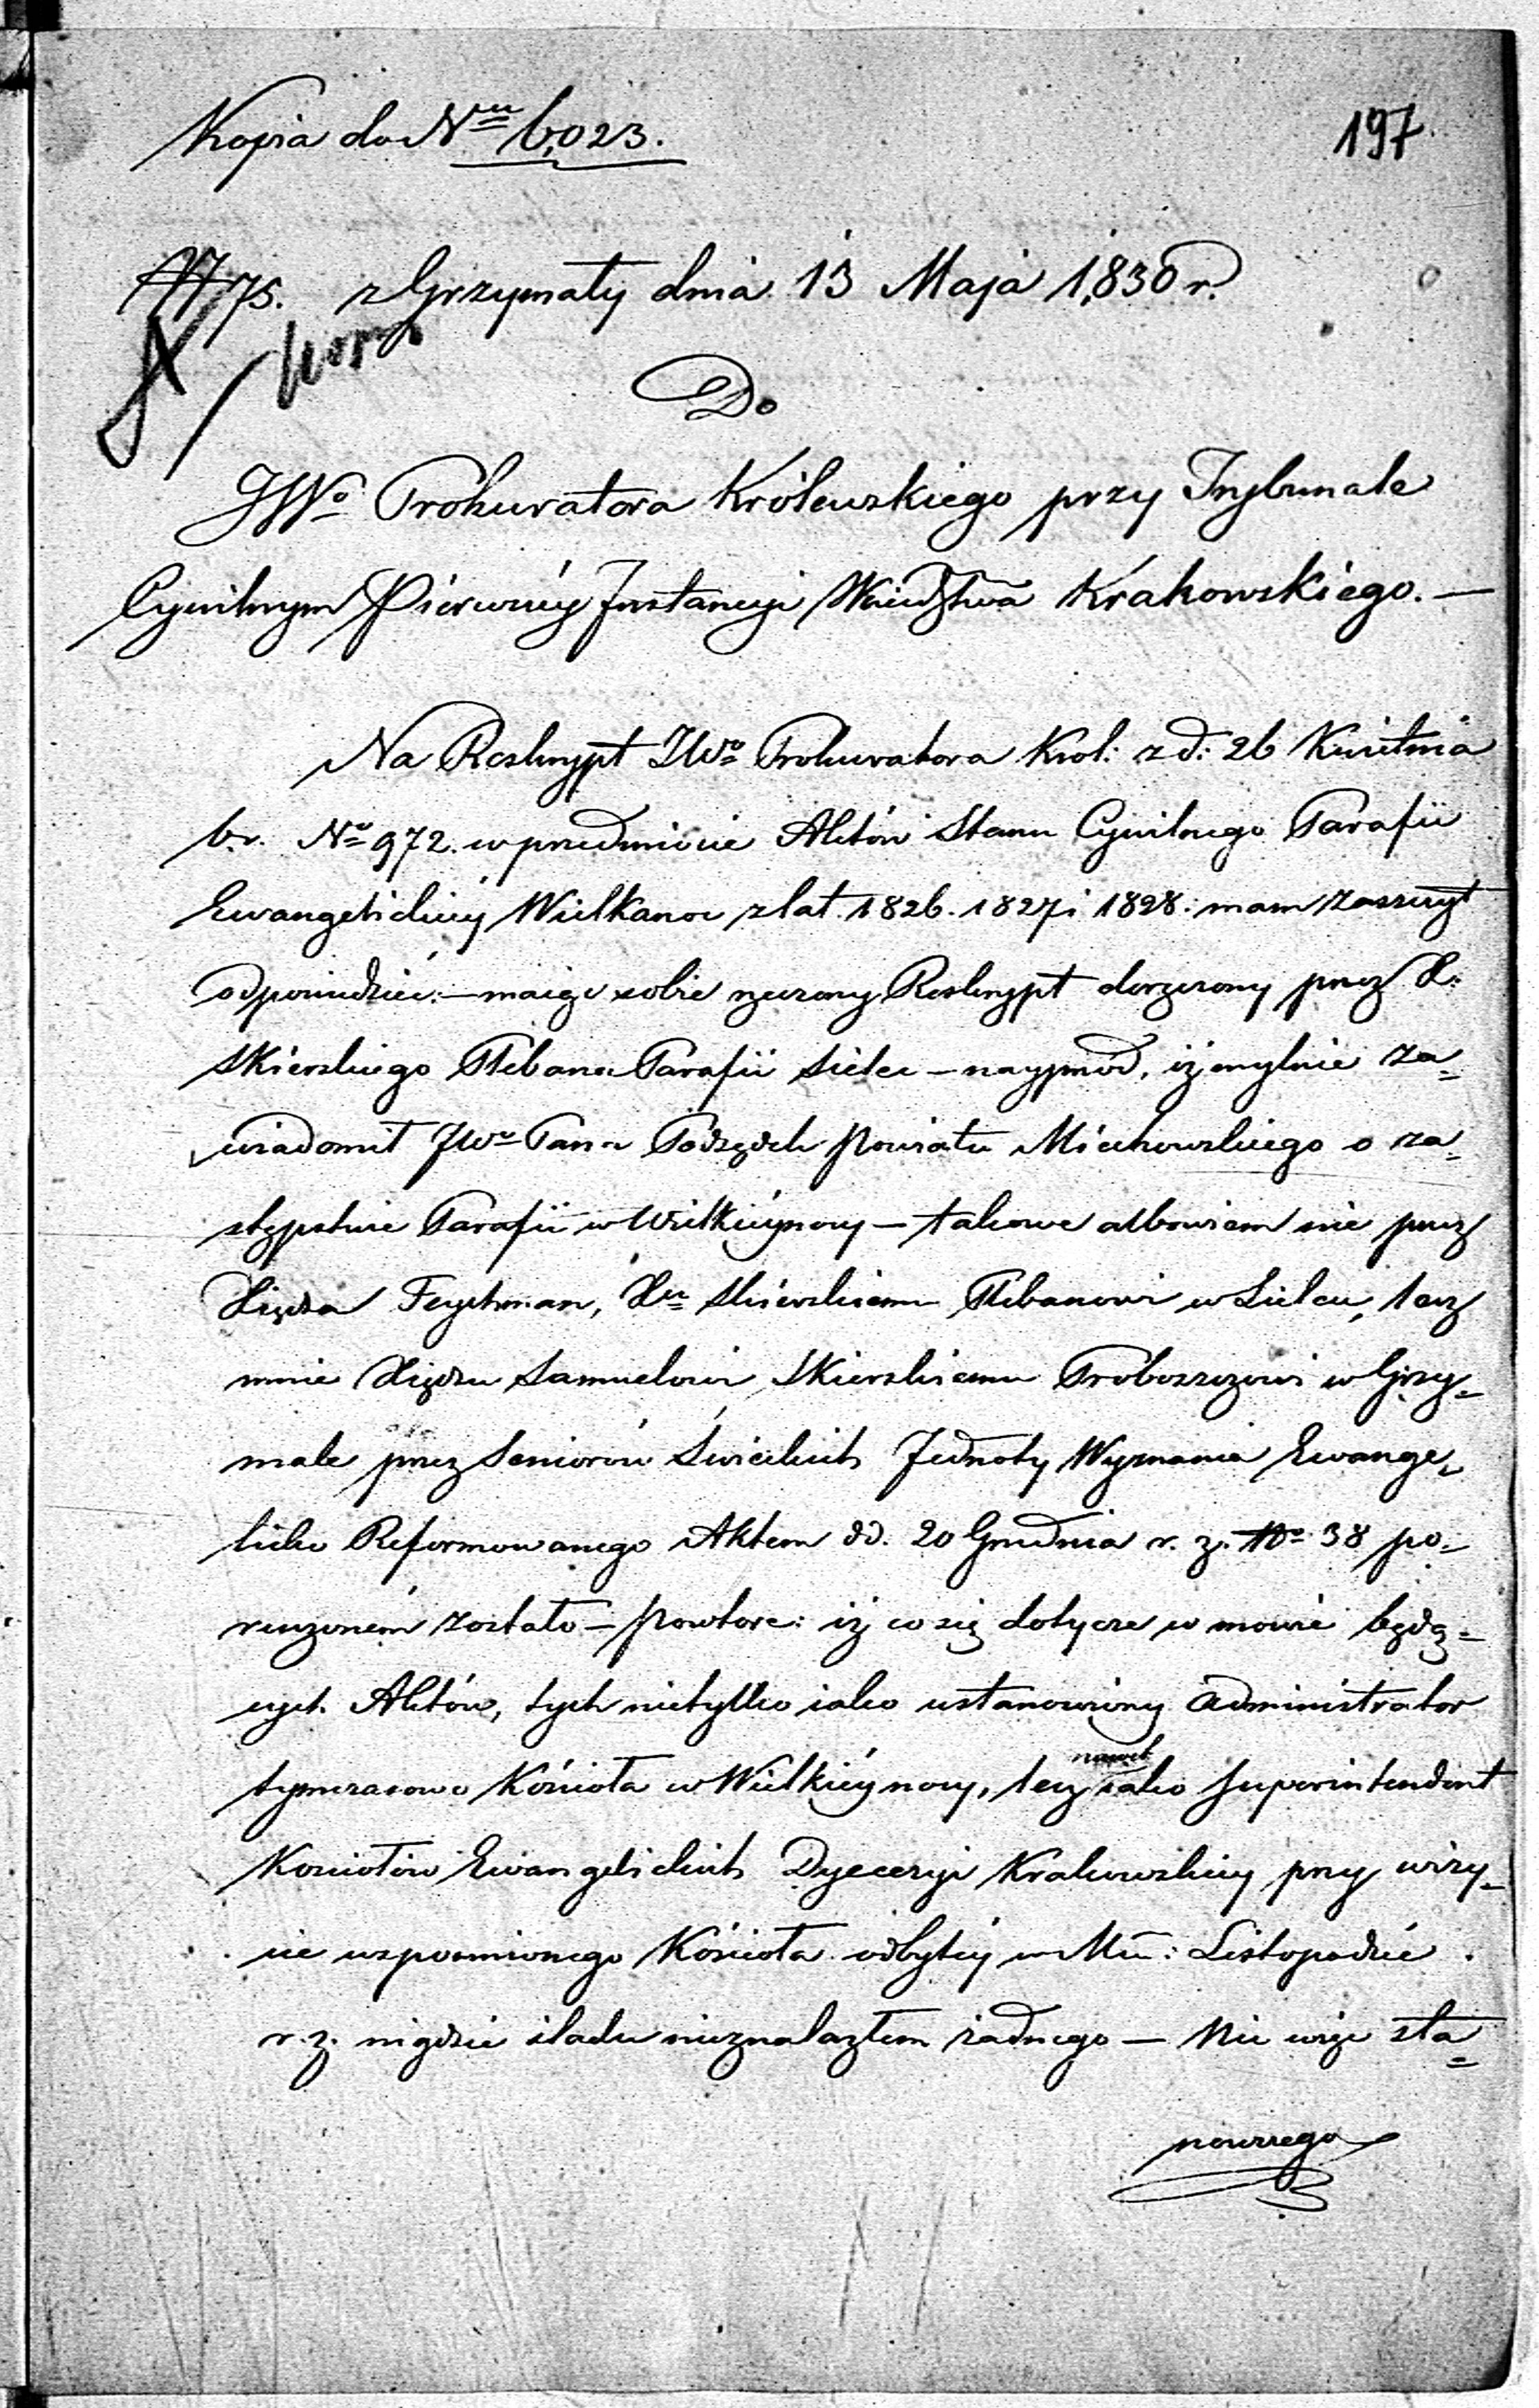 Kopia do Nru 6,023.
197
N 75. z Grzymały dnia 13 Maja 1,830 r.
Do
JWo Prokuratora Królewskiego przy Trybunale
Cywilnym Pierwszéy Instancyi Wojewdztwa Krakowskiego. —
Na Reskrypt JWo Prokuratora Krol: z d: 26 Kwietnia
b.r. No 972. w przedmiocie Aktów Stanu Cywilnego Parafii
Ewangelickiéy Wielkanoc z lat 1826. 1827 i 1828: mam zaszczyt
odpowiedzieć: — maiąc sobie rzeczony Reskrypt doręczony przez X:
Skierskiego Plebana Parafii Sielec — nayprzód, iż mylnie za=
wiadomił JWo Pana Podsędek Powiatu Miechowskiego o za=
stępstwie Parafii w Wielkiéynocy — takowe albowiem nie przez
Xiędza Feychman, Xu Skierskiemu Plebanowi w Sielcu, lecz
mnie Xiędzu Samuelowi Skierskiemu Proboszczowi w Grzy=
male przez Seniorów Świeckich Jednoty Wyznania Ewange=
licko Reformowanego Aktem dd. 20 Grudnia r. z. No 38 po=
ruczoném zostało — Powtore: iż co się dotycze w mowie będą=
cych Aktów, tych nietylko iako ustanowiony Administrator
tymczasowo Kościoła w Wielkiéynocy, lecz nawet iako Superintendent
Kościołów Ewangelickich Dyecezyi Krakowskiey przy wizy=
cie wspomnionego Kościoła odbytéy w Mcu: Listopadzie
r. z. nigdzie śladu nieznalazłem żadnego — Nic więc sta=
nowczego